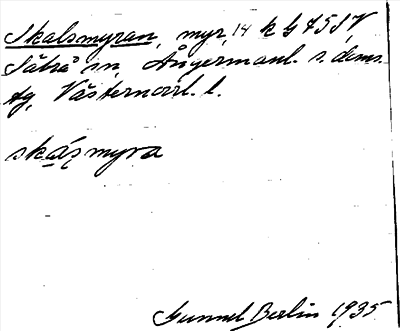 Skalsmyran, myr, 14 k b 7 5 S V,
Sätrå sn, Ångermanl. s. doms.
tg, Västernorrl. l.
skásmyra
Gunnel Berlin 1935